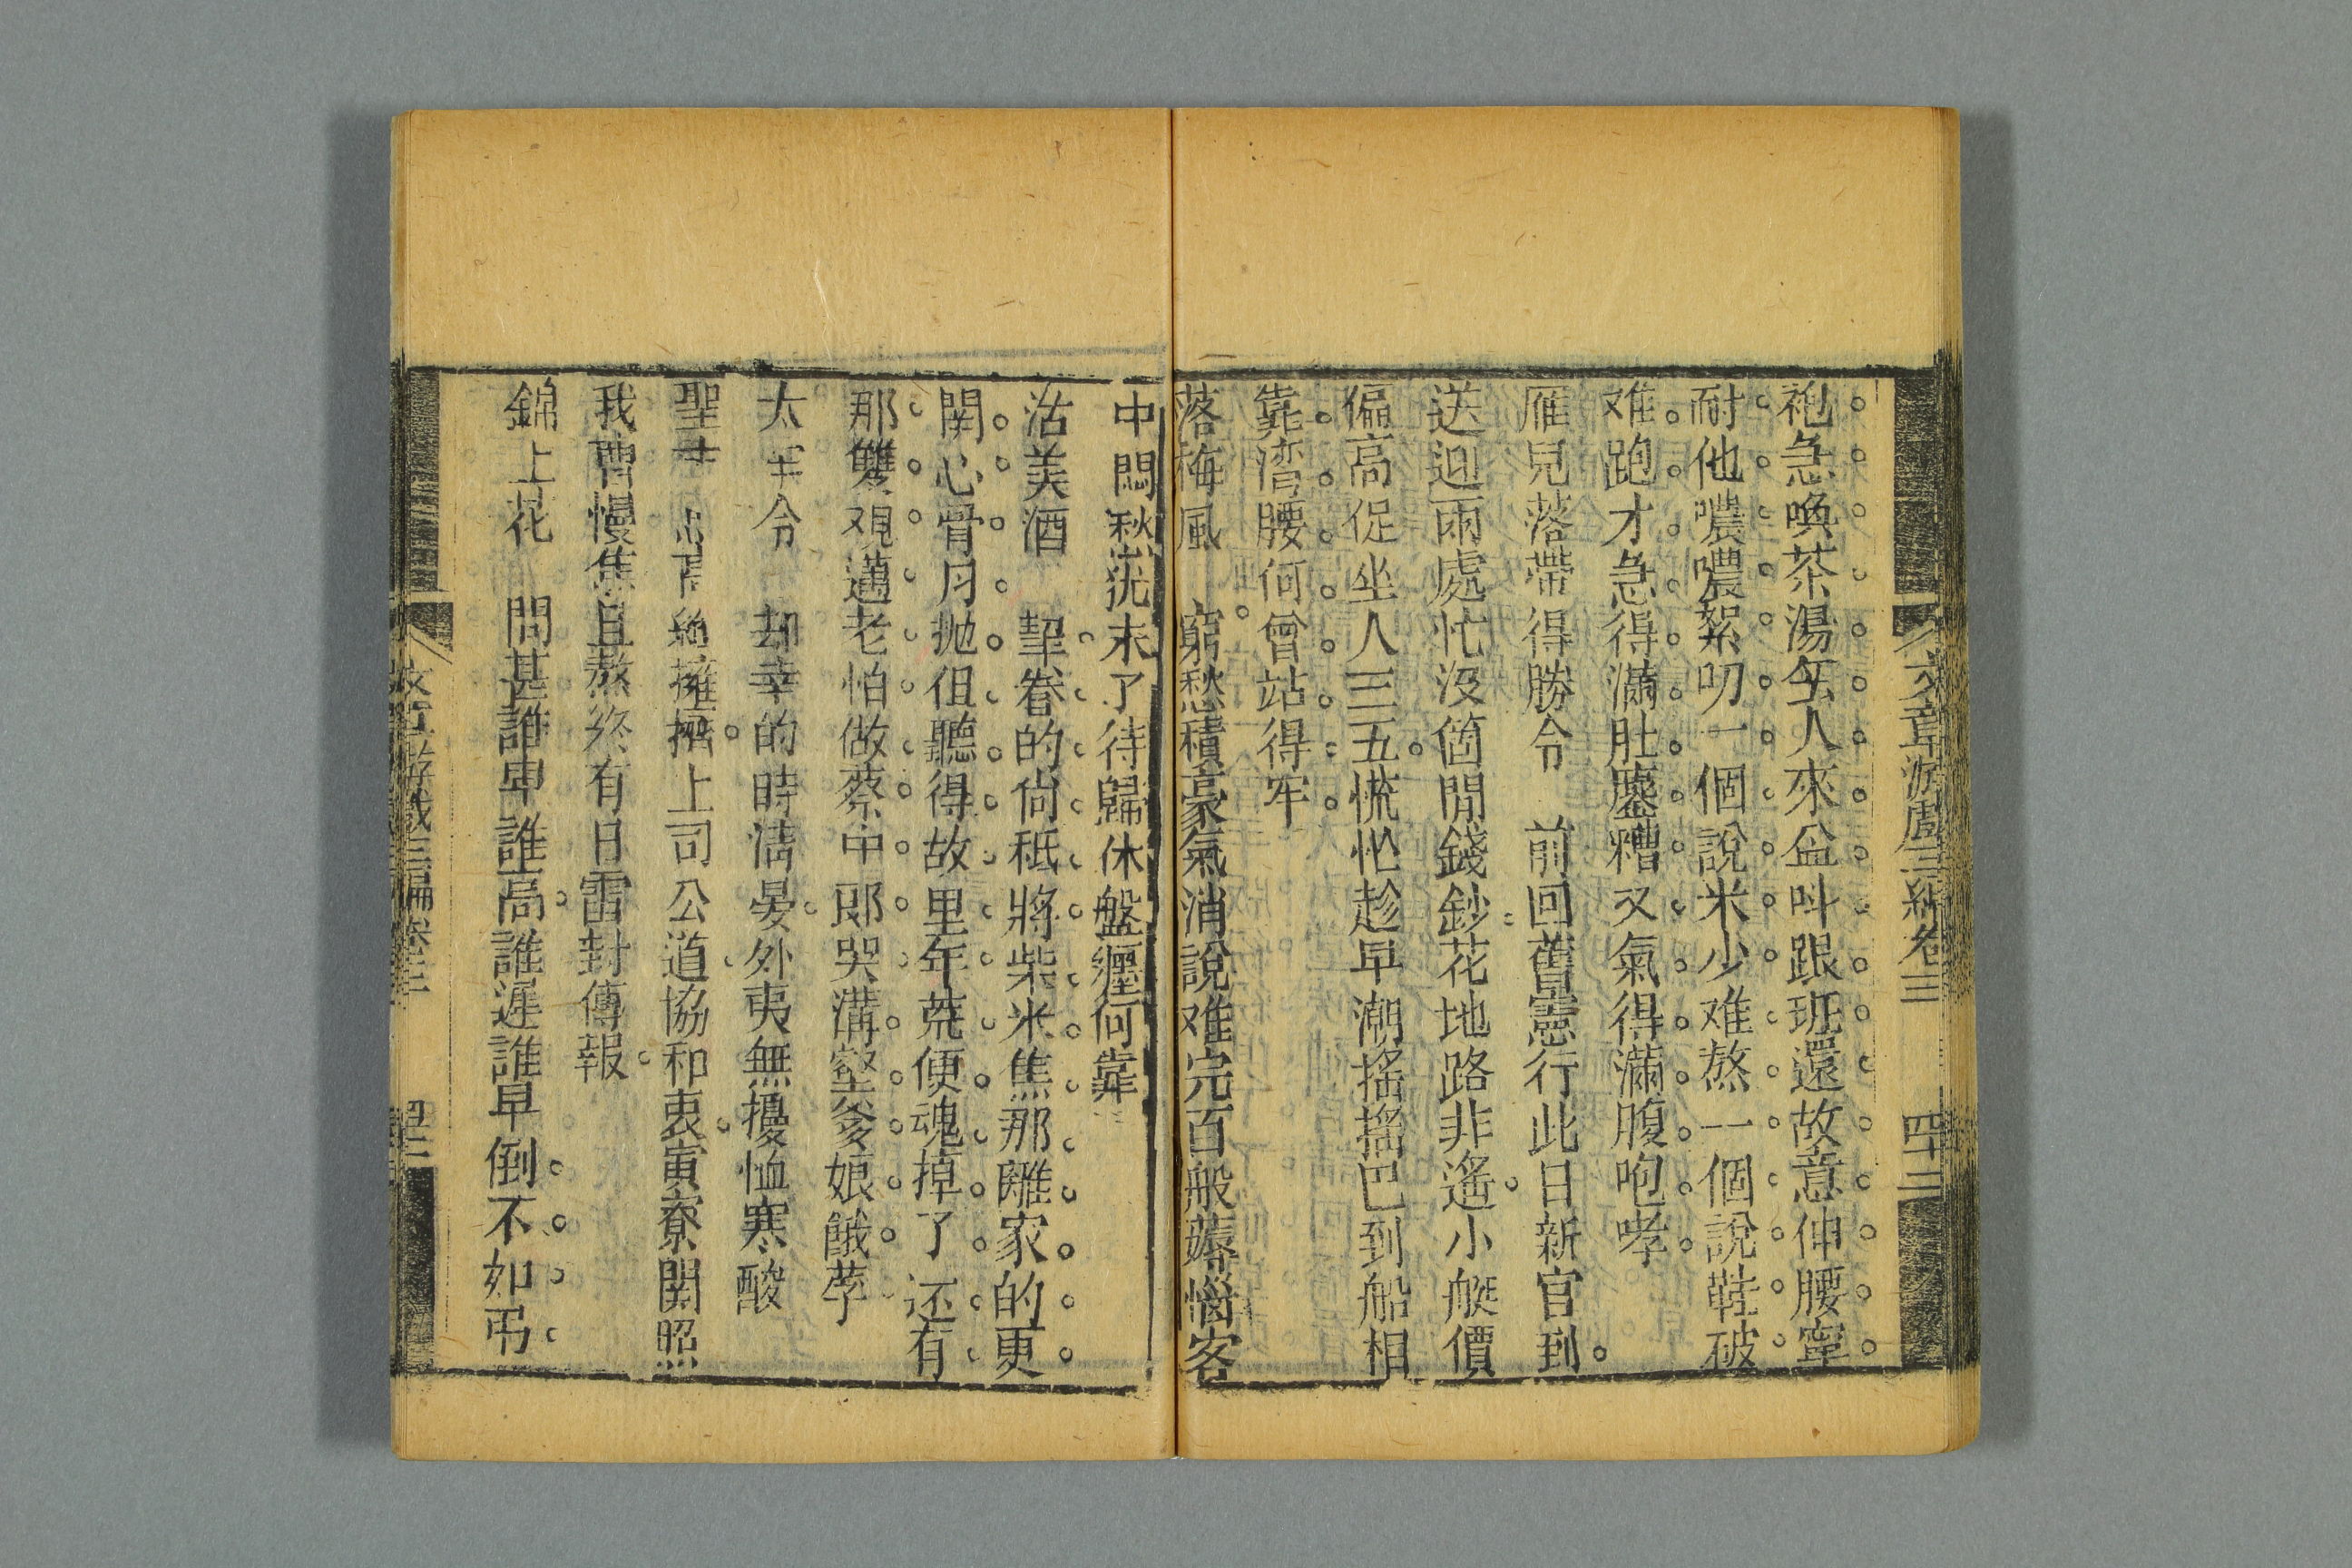 文章游戲三編卷三 四十三
袍急喚茶湯
人來盆呌跟班還故意伸腰寧
耐他噥噥絮叨一個說米少难熬一個說鞋破
难跑才急得滿肚鏖糟又氣得滿腹咆哮
雁兒落帶得勝令 前回舊憲行此日新官到
送迎兩處忙没箇閒錢鈔花地路非遙小艇價
偏高促坐人三五慌忙趁早潮搖搖巴到船相
靠湾腰何曾站得牢
落梅風 窮愁積豪氣消說难完百般薅惱客
中悶愁
未了待歸休盤纏何靠
沽美酒 挈眷的尙秪將柴米焦那離家的更
関心骨月抛但聽得故里年荒便魂掉了还有
那雙親邁老怕做蔡中郎哭溝壑爹娘餓莩
太平令 却幸的時淸晏外夷無擾恤寒酸
聖
擁
上司公道協和衷寅寮関照
我曹慢焦且熬終有日雷封傳報
錦上花 問甚誰卑誰高誰遲誰早倒不如弔
文章游戲三編卷三